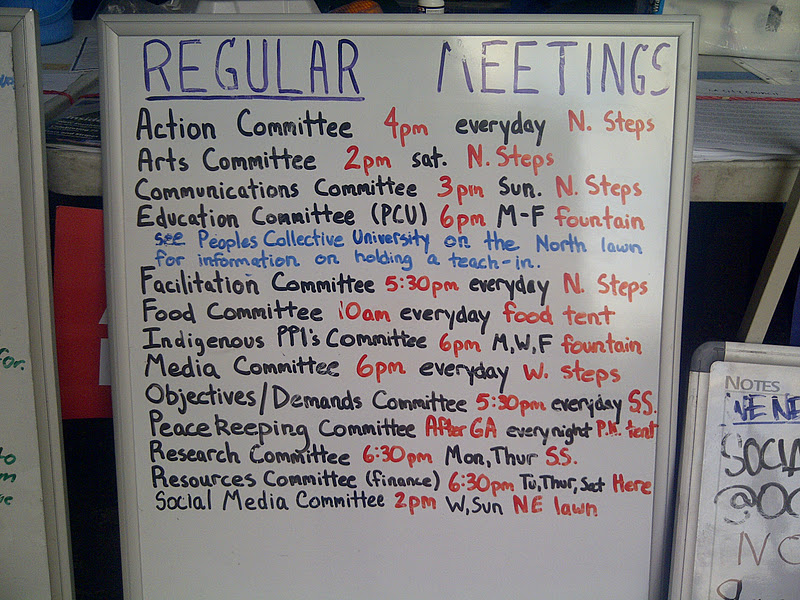 REGULAR MEETINGS
Action Committee 4pm everyday N. Steps
Arts Committee 2pm sat. N. Steps
Communications Committee 3pm Sun. N. Steps
Education Committee (PCU) 6pm M-F fountain
see Peoples Collective University on the North lawn
for information on holding a teach-in.
Facilitation Committee 5:30pm everyday N. Steps
Food Committee 10am everyday food tent
Indigenous PPl's Committee 6pm M,W,F fountain
Media Committee 6pm everyday W. steps
Objectives/Demands Committee 5:30pm everyday S.S.
Peacekeeping Committee After GA everynight P.K. tent
Research Committee 6:30pm Mon,Thur S.S.
Resources Committee (finance) 6:30pm Tu,Thur,Sat Here
Social Media Committee 2pm W,Sun NE lawn
for.
to
NOTES
WE NE
SOCIA
@OC